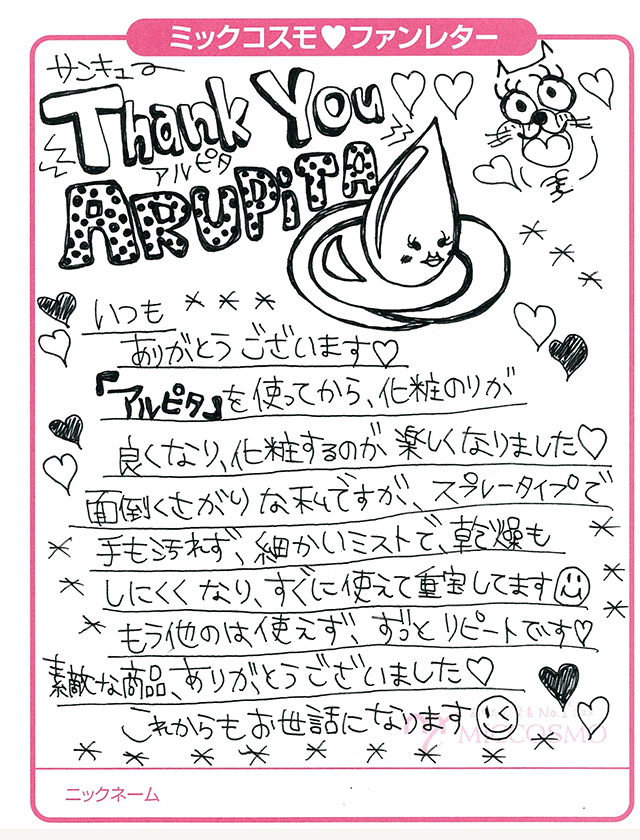 ミックコスモ♥ファンレター
サンキュー
Thank You
アルピタ
ARUPiTA
いつも
ありがとうございます♡
『アルピタ』を使ってから、化粧のりが
良くなり、化粧するのが楽しくなりました♡
面倒くさがりな私ですが、スプレータイプで
手も汚れず、細かいミストで、乾燥も
しにくくなり、すぐに使えて重宝してます
もう他のは使えず、ずっとリピートです♡
素敵な商品、ありがとうございました♡
これからもお世話になります
MICCOSMO
ニックネーム